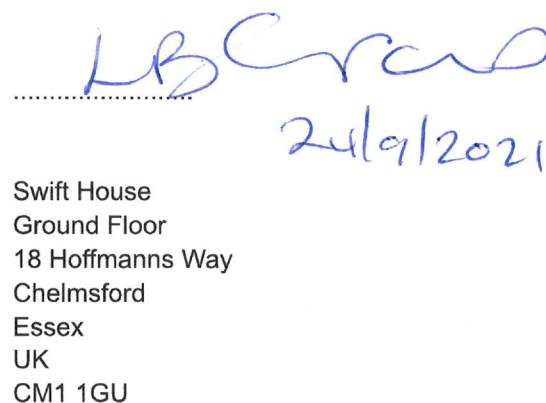 LB
24/9/2021
Swift House
Ground Floor
18 Hoffmanns Way
Chelmsford
Essex
UK
CM1 1GU